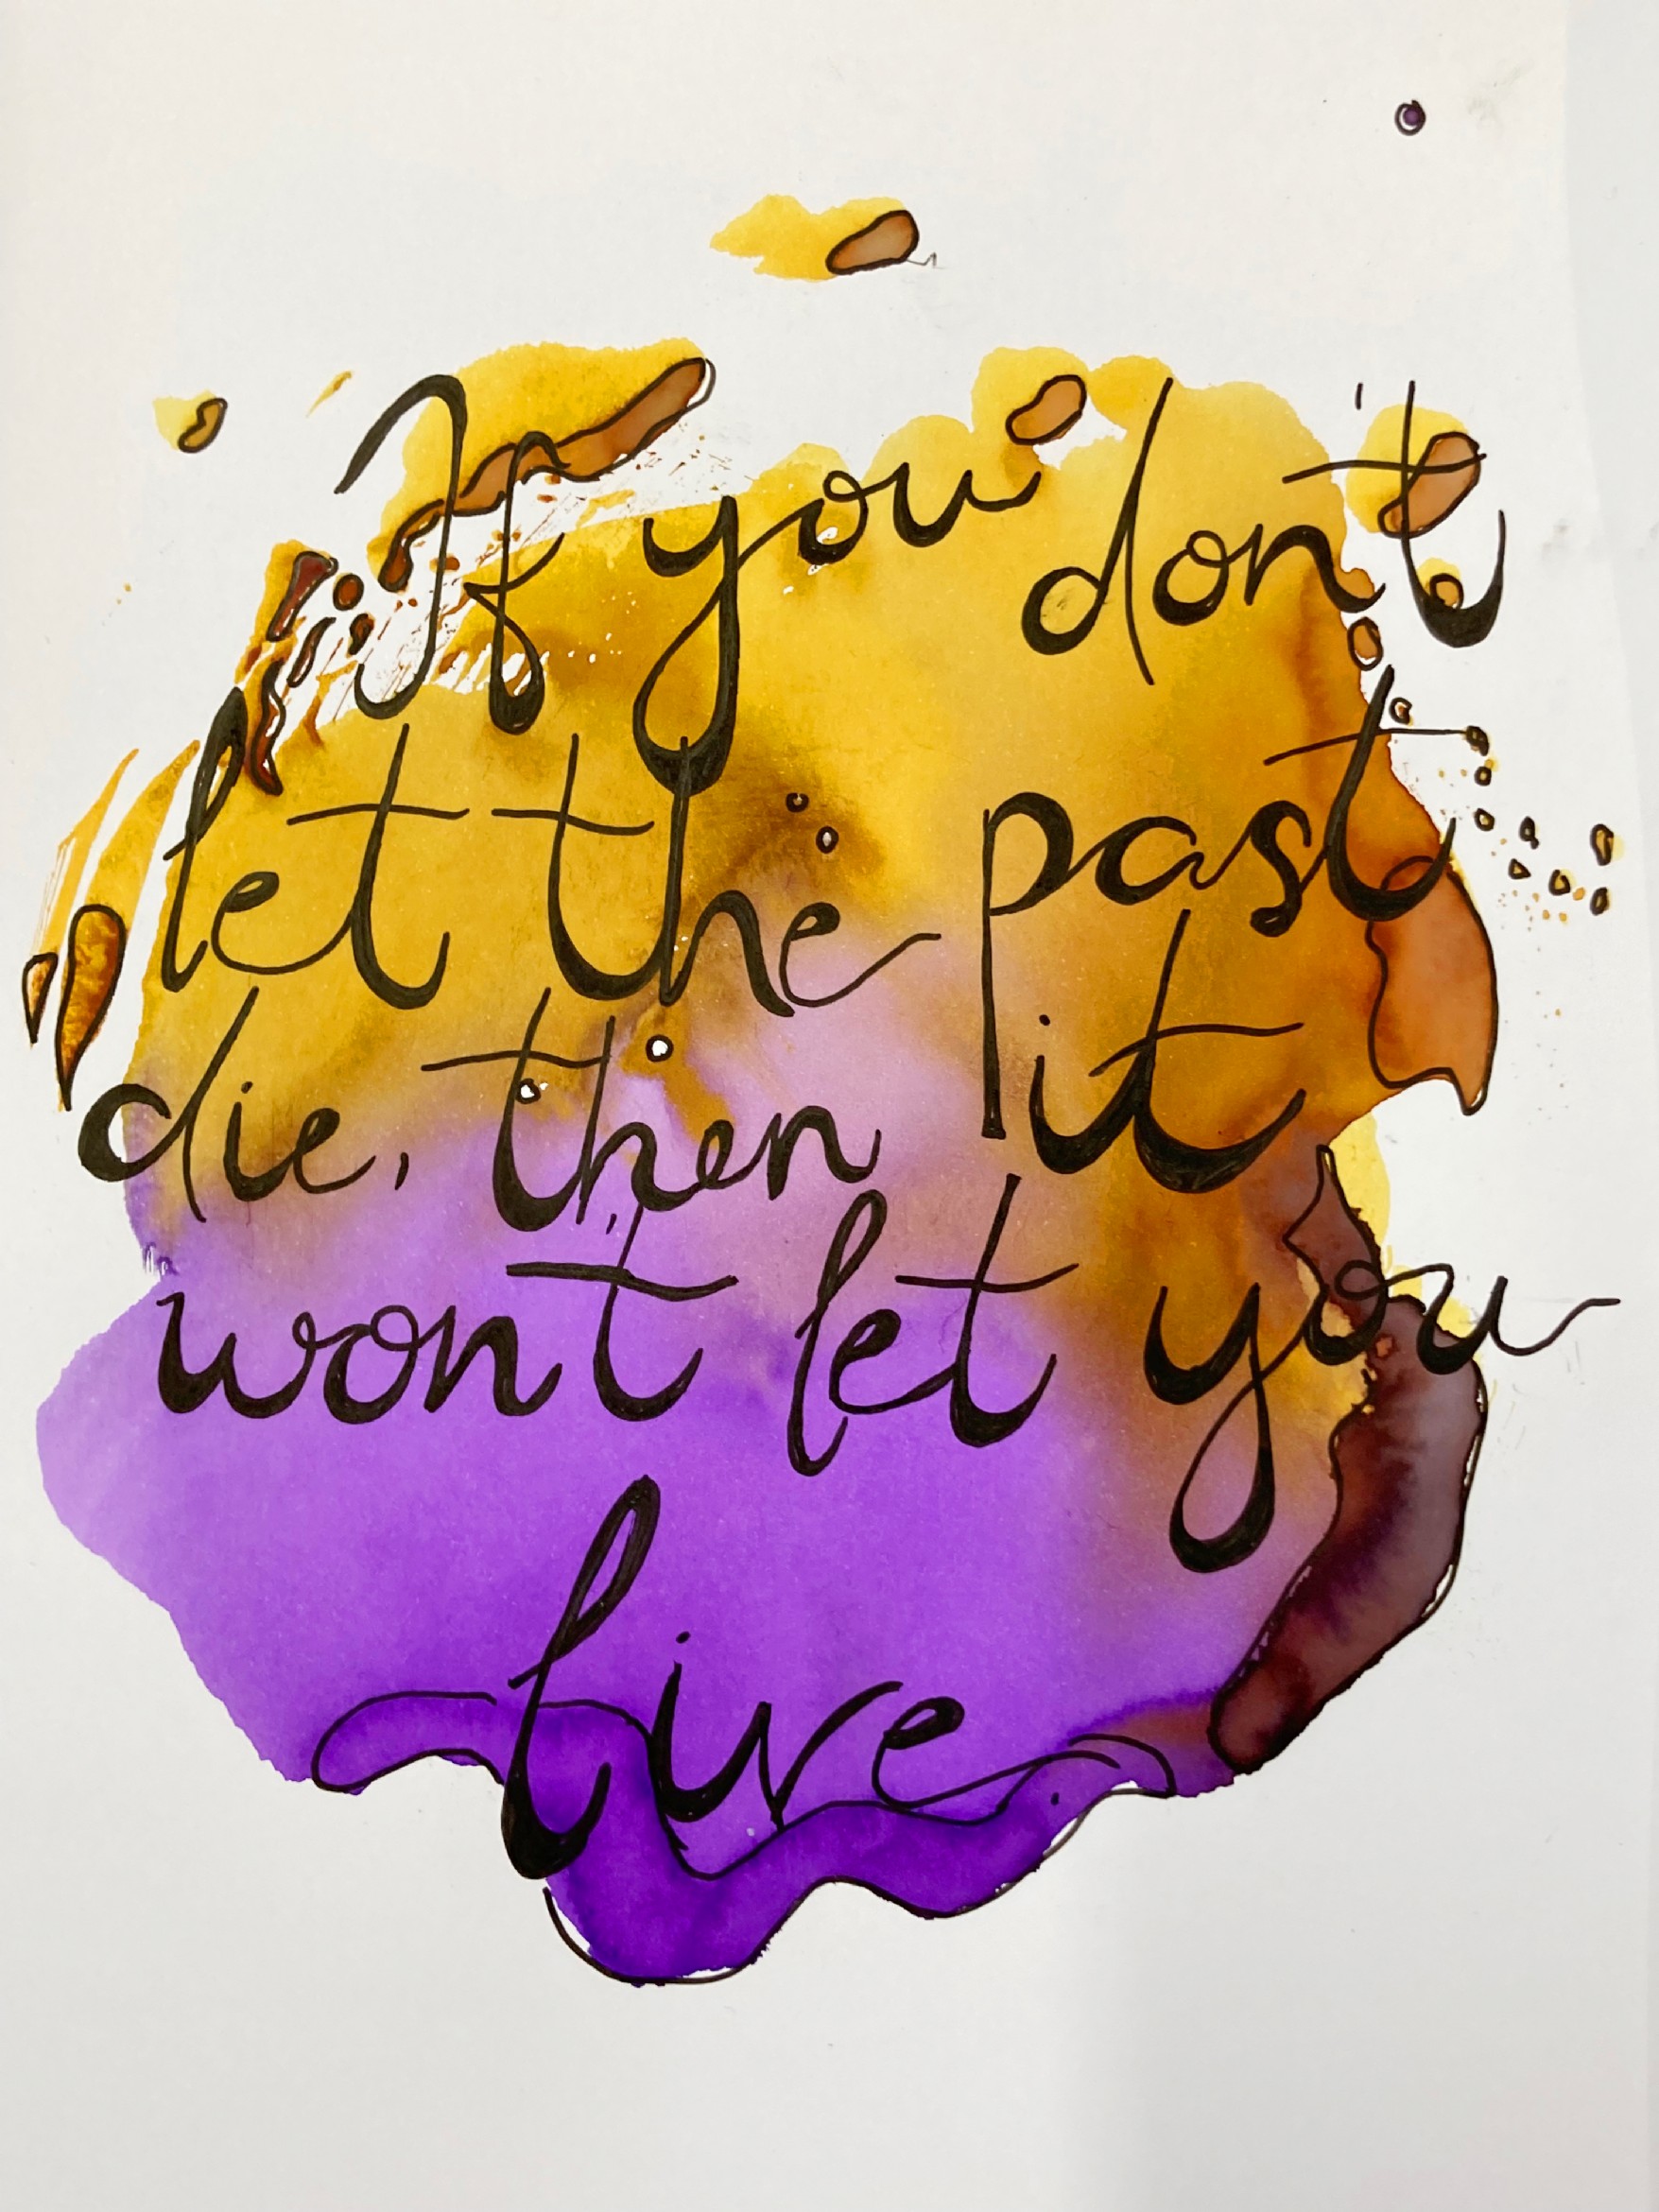 If you don't
let the past
die, then it
won't let you
live.